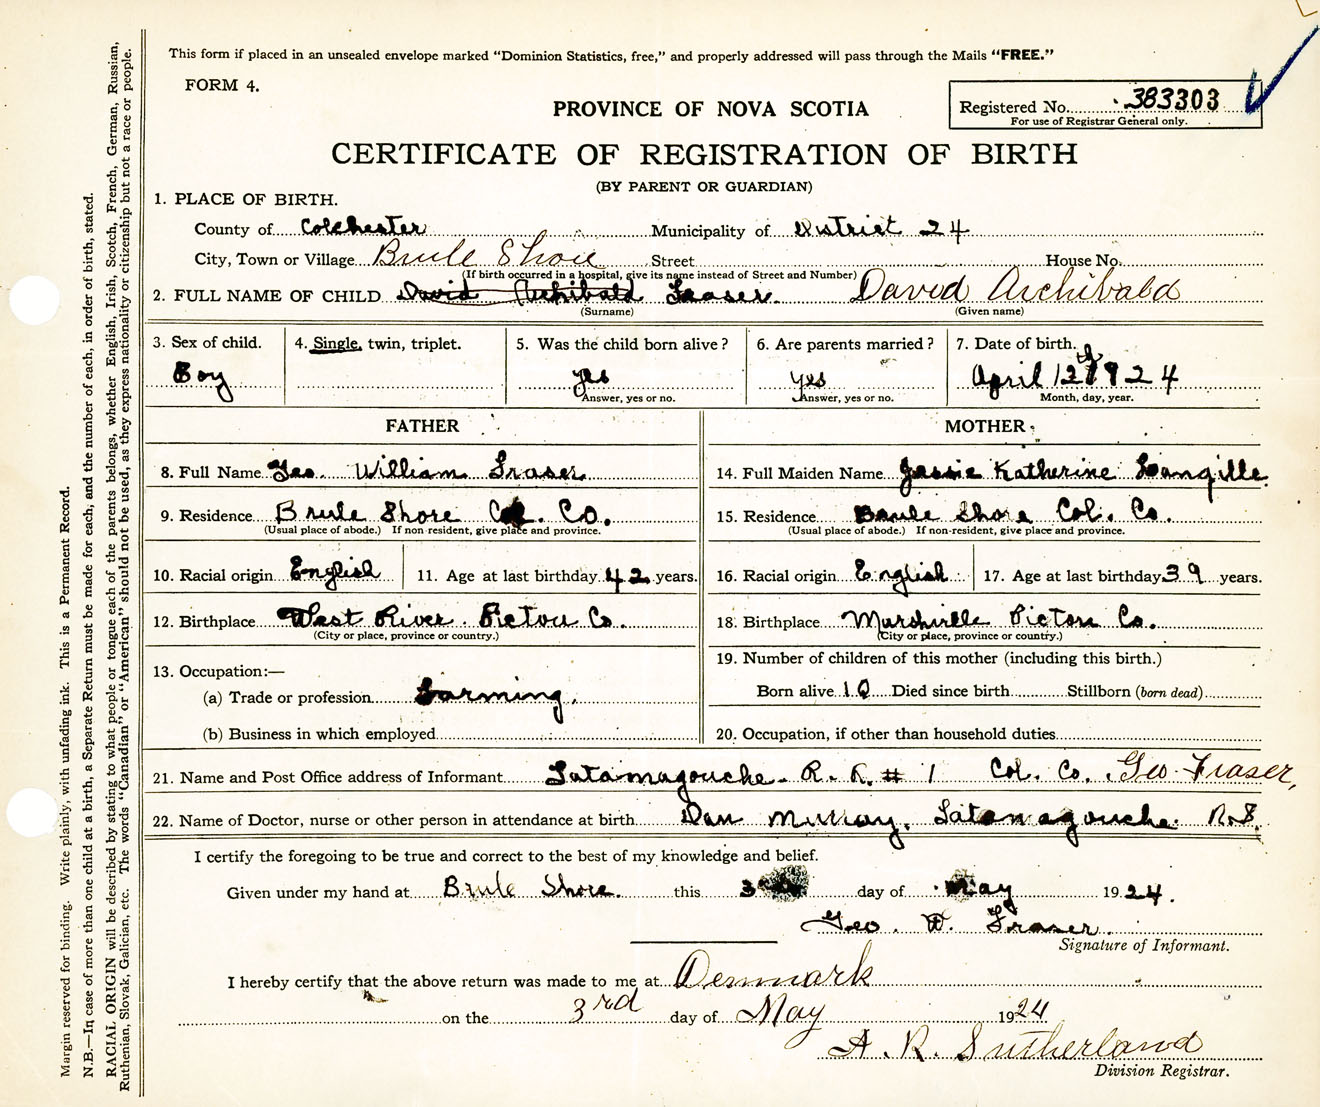 This form if placed in an unsealed envelope marked "Dominion Statistics, free," and properly addressed will pass through the Mails "FREE."
FORM 4.
PROVINCE OF NOVA SCOTIA
Registered No. 383303
For use of Registrar General only.
CERTIFICATE OF REGISTRATION OF BIRTH
(BY PARENT OR GUARDIAN)
1. PLACE OF BIRTH.
County of Colchester Municipality of District 24
City, Town or Village Brule Shore Street House No.
(If birth occurred in a hospital, give its name instead of Street and Number)
2. FULL NAME OF CHILD David Archibald Fraser. David Archibald
(Surname) (Given name)
3. Sex of child. 4. Single, twin, triplet. 5. Was the child born alive? 6. Are parents married? 7. Date of birth.
Boy yes yes April 12th 1924
Answer, yes or no. Answer, yes or no. Month, day, year.
FATHER MOTHER
8. Full Name Geo. William Fraser 14. Full Maiden Name Jessie Katherine Langille
9. Residence Brule Shore Col. Co. 15. Residence Brule Shore Col. Co.
(Usual place of abode.) If non-resident, give place and province. (Usual place of abode.) If non-resident, give place and province.
10. Racial origin English 11. Age at last birthday 42 years. 16. Racial origin English 17. Age at last birthday 39 years.
12. Birthplace West River Pictou Co. 18. Birthplace Marshville Pictou Co.
(City or place, province or country.) (City or place, province or country.)
13. Occupation:— 19. Number of children of this mother (including this birth.)
(a) Trade or profession Farming. Born alive 10 Died since birth Stillborn (born dead)
(b) Business in which employed 20. Occupation, if other than household duties
21. Name and Post Office address of Informant Tatamagouche R. R. # 1 Col. Co. Geo Fraser,
22. Name of Doctor, nurse or other person in attendance at birth Dan Murray, Tatamagouche N.S.
I certify the foregoing to be true and correct to the best of my knowledge and belief.
Given under my hand at Brule Shore. this 3 day of May 1924.
Geo. W. Fraser.
Signature of Informant.
I hereby certify that the above return was made to me at Denmark
on the 3rd day of May 1924
A. R. Sutherland
Division Registrar.
Margin reserved for binding. Write plainly, with unfading ink. This is a Permanent Record.
N.B.—In case of more than one child at a birth, a Separate Return must be made for each, and the number of each, in order of birth, stated.
RACIAL ORIGIN will be described by stating to what people or tongue each of the parents belongs, whether English, Irish, Scotch, French, German, Russian,
Ruthenian, Slovak, Galician, etc. The words "Canadian" or "American" should not be used, as they express nationality or citizenship but not a race or people.